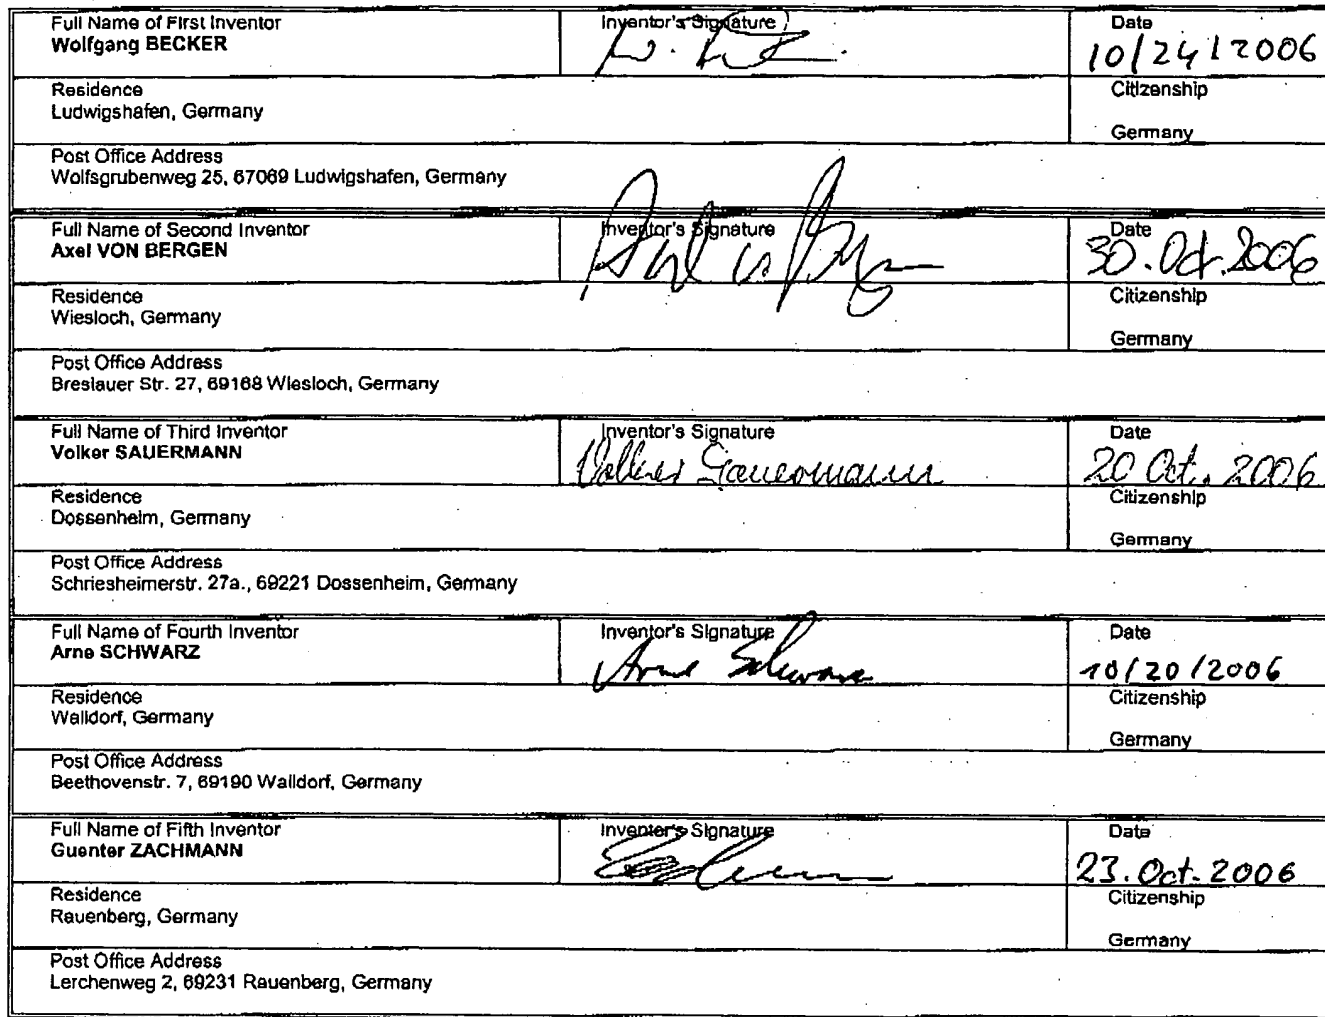 Full Name of First Inventor
Wolfgang BECKER
Inventor's Signature
Date
10/24/2006
Residence
Ludwigshafen, Germany
Citizenship
Germany
Post Office Address
Wolfsgrubenweg 25, 67069 Ludwigshafen, Germany
Full Name of Second Inventor
Axel VON BERGEN
Inventor's Signature
Date
30. Oct. 2006
Residence
Wiesloch, Germany
Citizenship
Germany
Post Office Address
Breslauer Str. 27, 69168 Wiesloch, Germany
Full Name of Third Inventor
Volker SAUERMANN
Inventor's Signature
Volker Sauermann
Date
20 Oct. 2006
Residence
Dossenheim, Germany
Citizenship
Germany
Post Office Address
Schriesheimerstr. 27a., 69221 Dossenheim, Germany
Full Name of Fourth Inventor
Arne SCHWARZ
Inventor's Signature
Arne Schwarz
Date
10/20/2006
Residence
Walldorf, Germany
Citizenship
Germany
Post Office Address
Beethovenstr. 7, 69190 Walldorf, Germany
Full Name of Fifth Inventor
Guenter ZACHMANN
Inventor's Signature
Date
23. Oct. 2006
Residence
Rauenberg, Germany
Citizenship
Germany
Post Office Address
Lerchenweg 2, 69231 Rauenberg, Germany